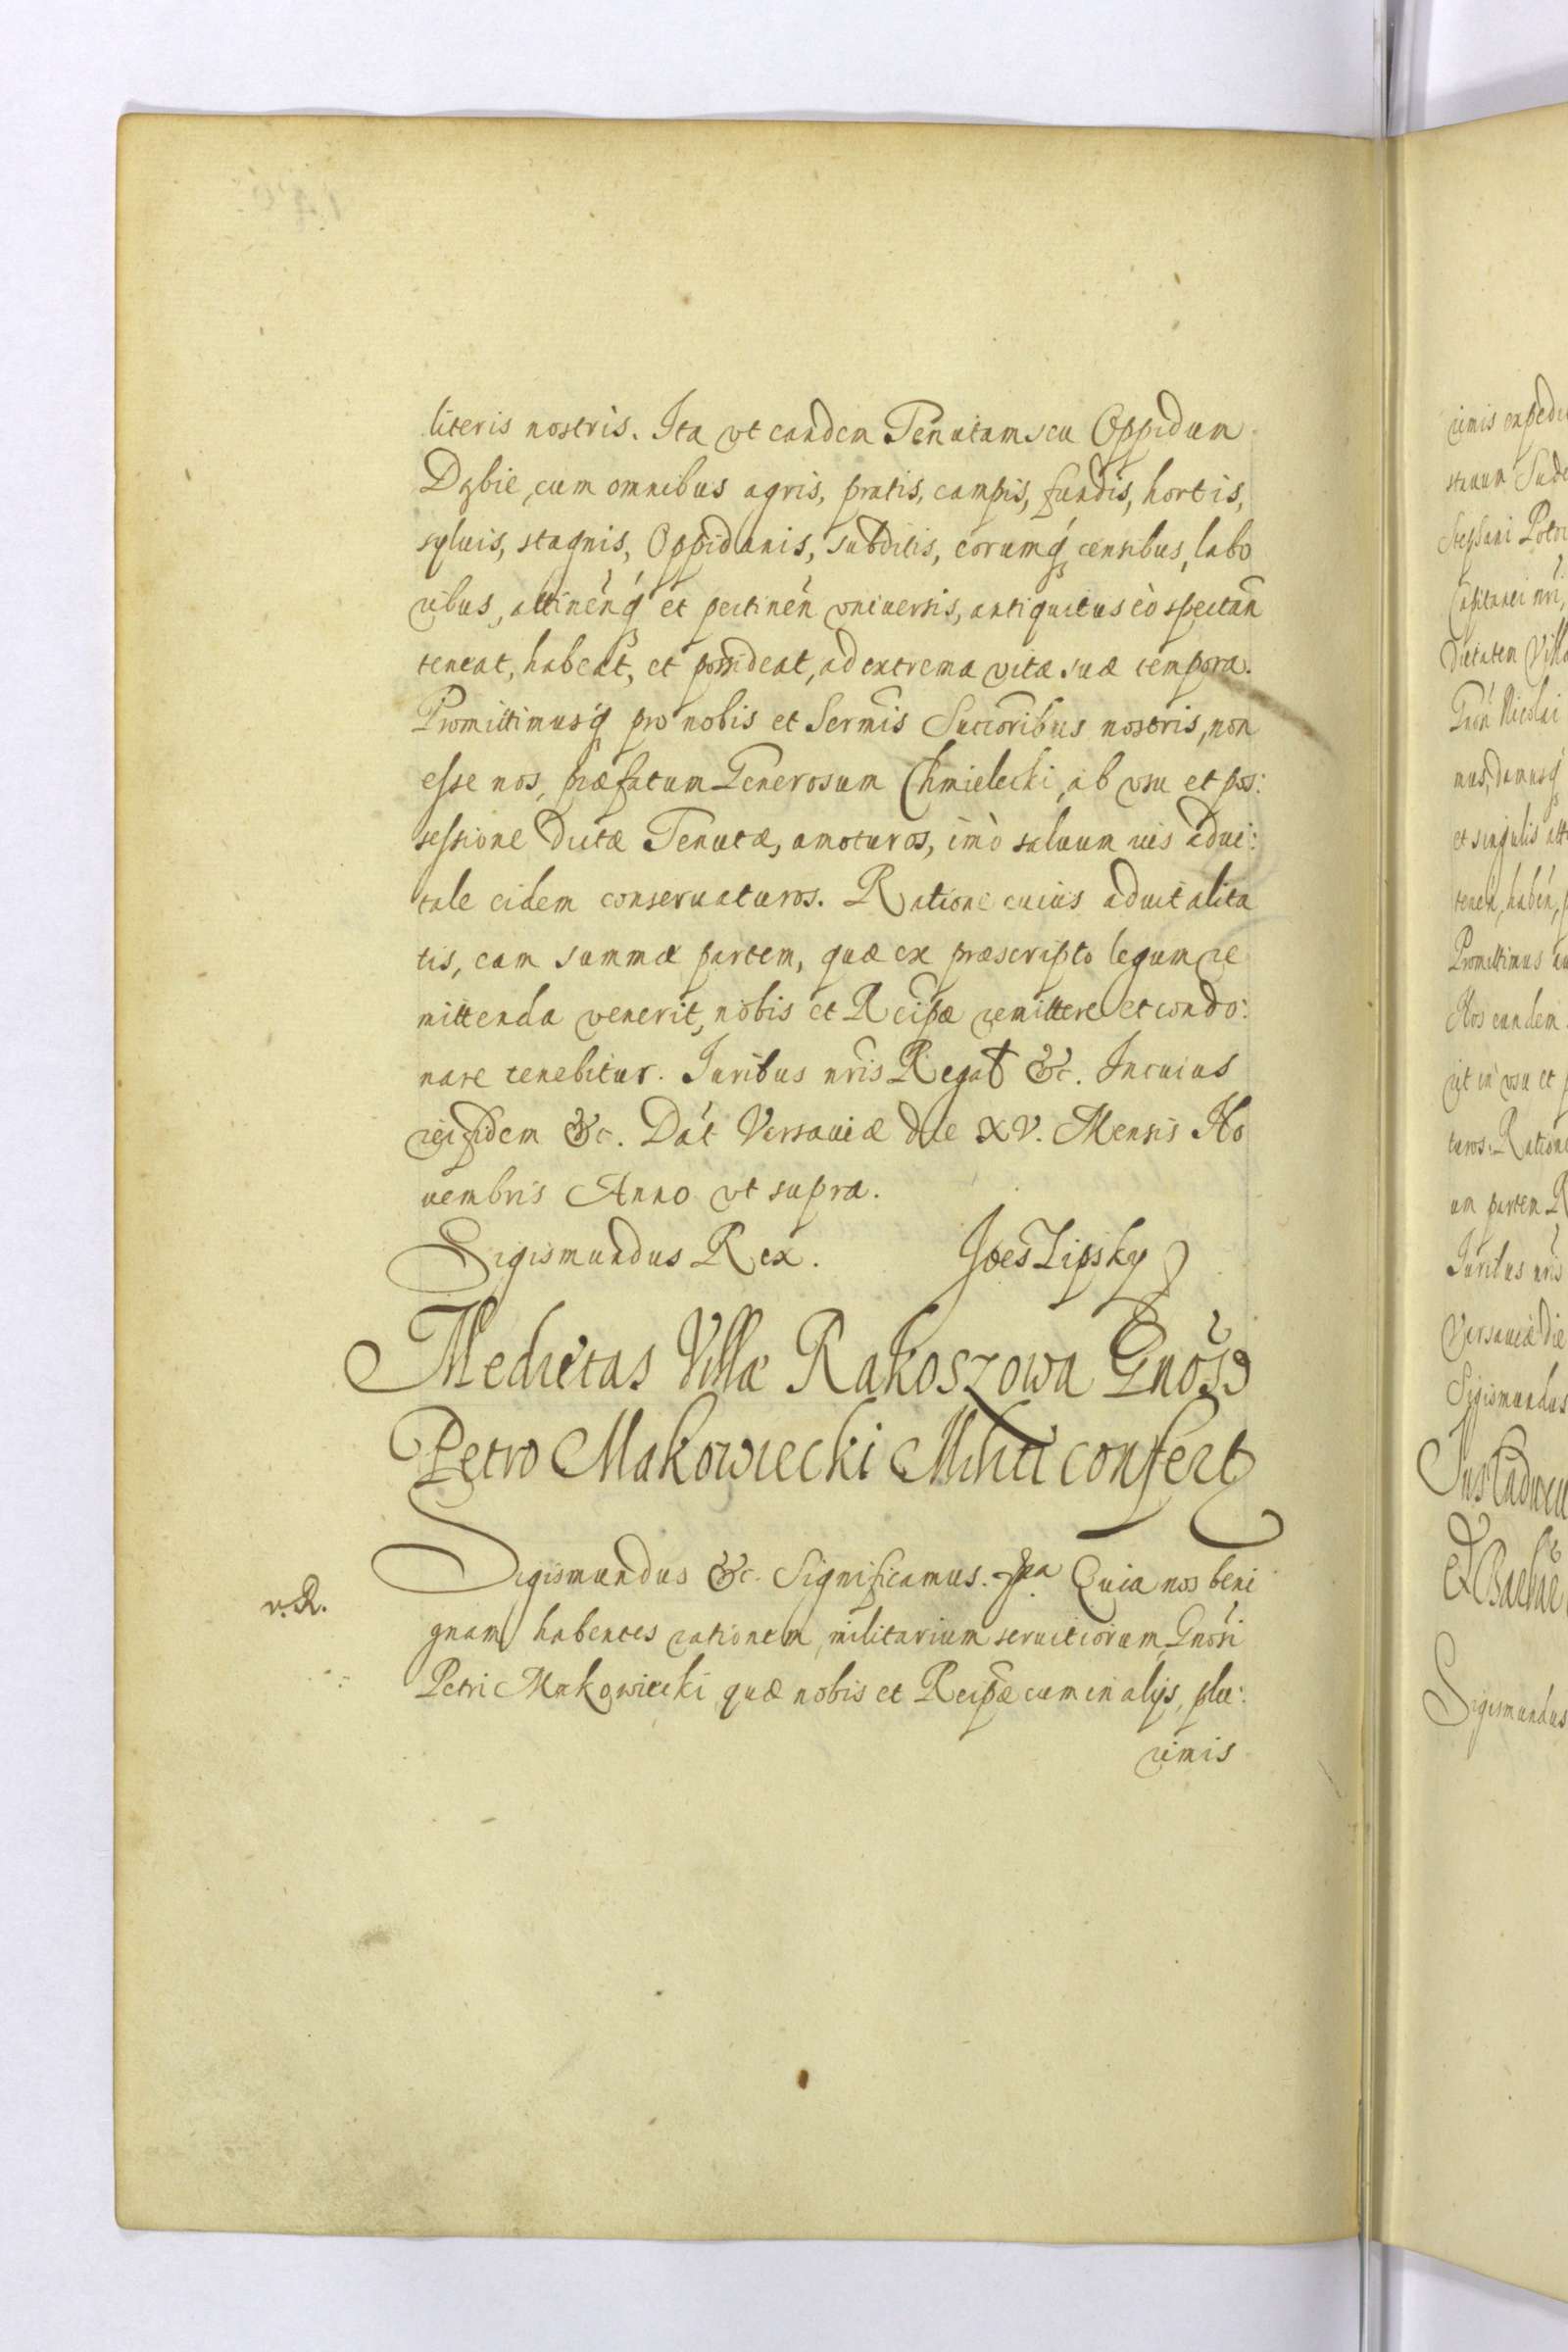 literis nostris. Ita vt eandem Tenutam seu Oppidum
Dąbie, cum omnibus agris, pratis, campis, fundis, hortis,
syluis, stagnis, Oppidanis, subditis, eorumq́ censibus, labo
ribus, attineñq́ et pertineñ vniuersis, antiquitus eò spectañ
teneat, habeat, et possideat, ad extrema vitæ suæ tempora.
Promittimusq́ pro nobis et Serm̃is Succoribus nostris, non
esse nos, præfatum Generosum Chmielecki, ab vsu et pos:
sessione dictæ Tenutæ, amoturos, imò saluum ius adui:
tale eidem conseruaturos. Ratione cuius aduitalita
tis, eam summæ partem, quæ ex præscripto legum re
mittenda venerit, nobis et Reipæ remittere et condo:
nare tenebitur. Iuribus nris Regal &c. In cuius
rei fidem &c. Dat́ Varsauiæ die XV. Mensis No
uembris Anno vt supra.
Sigismundus Rex. Joes Lipsky
Medietas Villæ Rakoszowa Gnõso
Petro Makowiecki Militi confert
Sigismundus &c. Significamus. Quia nos beni
v. R.
gnam habentes rationem, militarium seruitiorum, Gnosi
Petri Makowiecki quæ nobis et Reipæ cum in alijs, plu:
rimis
rimis expedi
Stephani
Capitanei nri,
dietatem Villæ
Gnõsi Nicolai
mus, damusq́
et singulis att
teneñ, habeñ, p
Promittimus
Nos eandem
uit in vsu et p
turos. Ratione
am partem R
Iuribus nris
Varsauiæ die
Sigismundus
Ius Caducu
Sigismundus